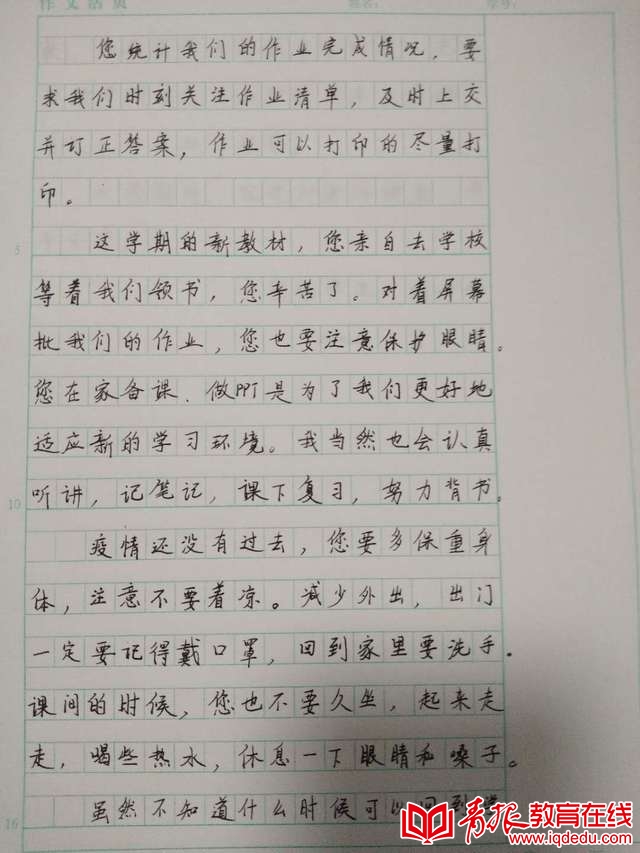 作文活页
您统计我们的作业完成情况，要
求我们时刻关注作业清单，及时上交
并订正答案，作业可以打印的尽量打
印。
这学期的新教材，您亲自去学校
5
等着我们领书，您辛苦了。对着屏幕
批我们的作业，您也要注意保护眼睛。
您在家备课、做PPT是为了我们更好地
适应新的学习环境。我当然也会认真
听讲，记笔记，课下复习，努力背书。
10
疫情还没有过去，您要多保重身
体，注意不要着凉。减少外出，出门
一定要记得戴口罩，回到家里要洗手。
课间的时候，您也不要久坐，起来走
走，喝些热水，休息一下眼睛和嗓子。
虽然不知道什么时候可以回到
16
青报教育在线
www.iqdedu.com